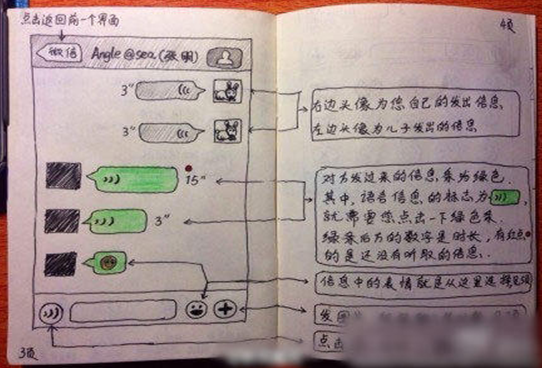 点击返回前一个界面
微信
Angle@sea(张明)
3"
3"
15"
3"
3页
4页
右边头像为您自己的发出信息,
左边头像为儿子发出的信息
对方发过来的信息条为绿色.
其中,语音信息的标志为
就需要您点击一下绿色条.
绿条后方的数字是时长,有红点
的是还没有听取的信息.
信息中的表情就是从这里选择见
发
点击